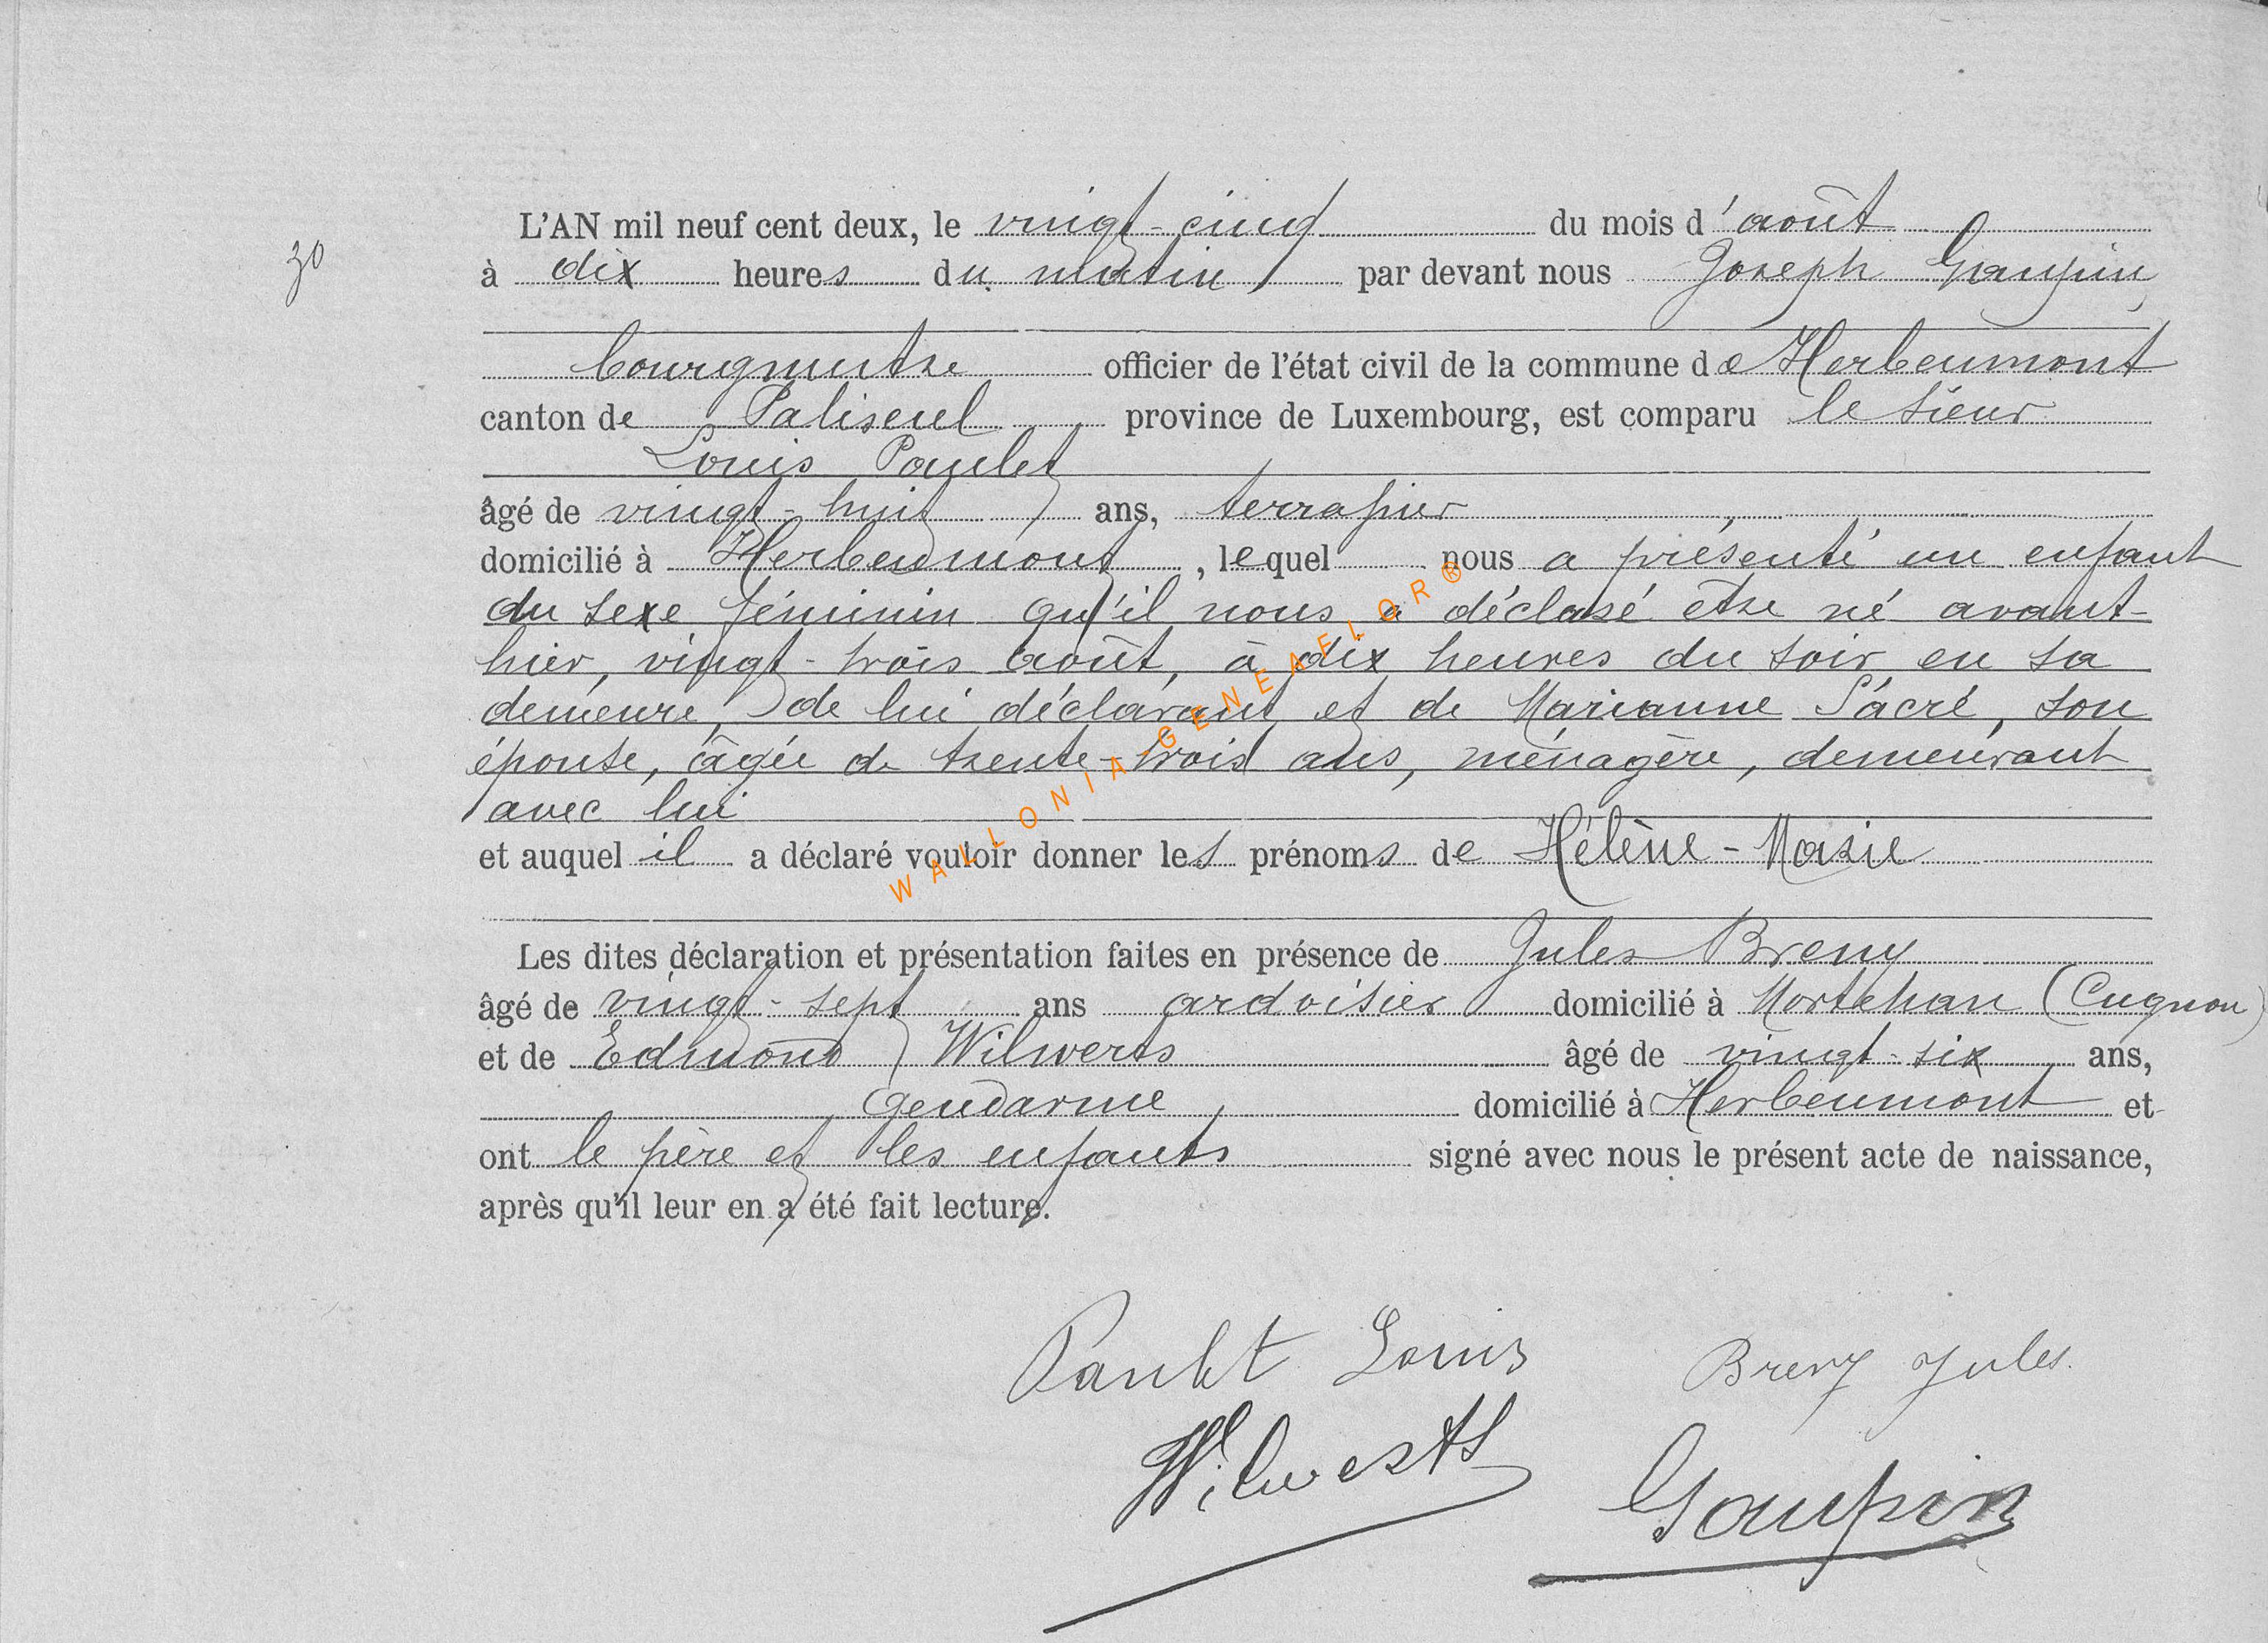 30
L'AN mil neuf cent deux, le vingt-cinq du mois d'août
à dix heures du matin par devant nous Joseph Gaupin,
bourgmestre officier de l'état civil de la commune de Herbeumont
canton de Paliseul province de Luxembourg, est comparu le sieur
Louis Paulet
âgé de vingt-huit ans, terrassier,
domicilié à Herbeumont, lequel nous a présenté un enfant
du sexe féminin qu'il nous a déclaré être né avant-
hier, vingt-trois août, à dix heures du soir en sa
demeure, de lui déclarant et de Marianne Sacré, son
épouse, âgée de trente-trois ans, ménagère, demeurant
avec lui
et auquel il a déclaré vouloir donner les prénoms de Hélène-Marie
Les dites déclaration et présentation faites en présence de Jules Breny
âgé de vingt-sept ans ardoisier domicilié à Mortehan (Cugnon)
et de Edmond Wilwerts âgé de vingt-six ans,
gendarme, domicilié à Herbeumont et
ont le père et les enfants signé avec nous le présent acte de naissance,
après qu'il leur en a été fait lecture.
Paulet Louis Breny Jules.
Wilwerts Gaupin
WALLONIA-GENEAFLOR®